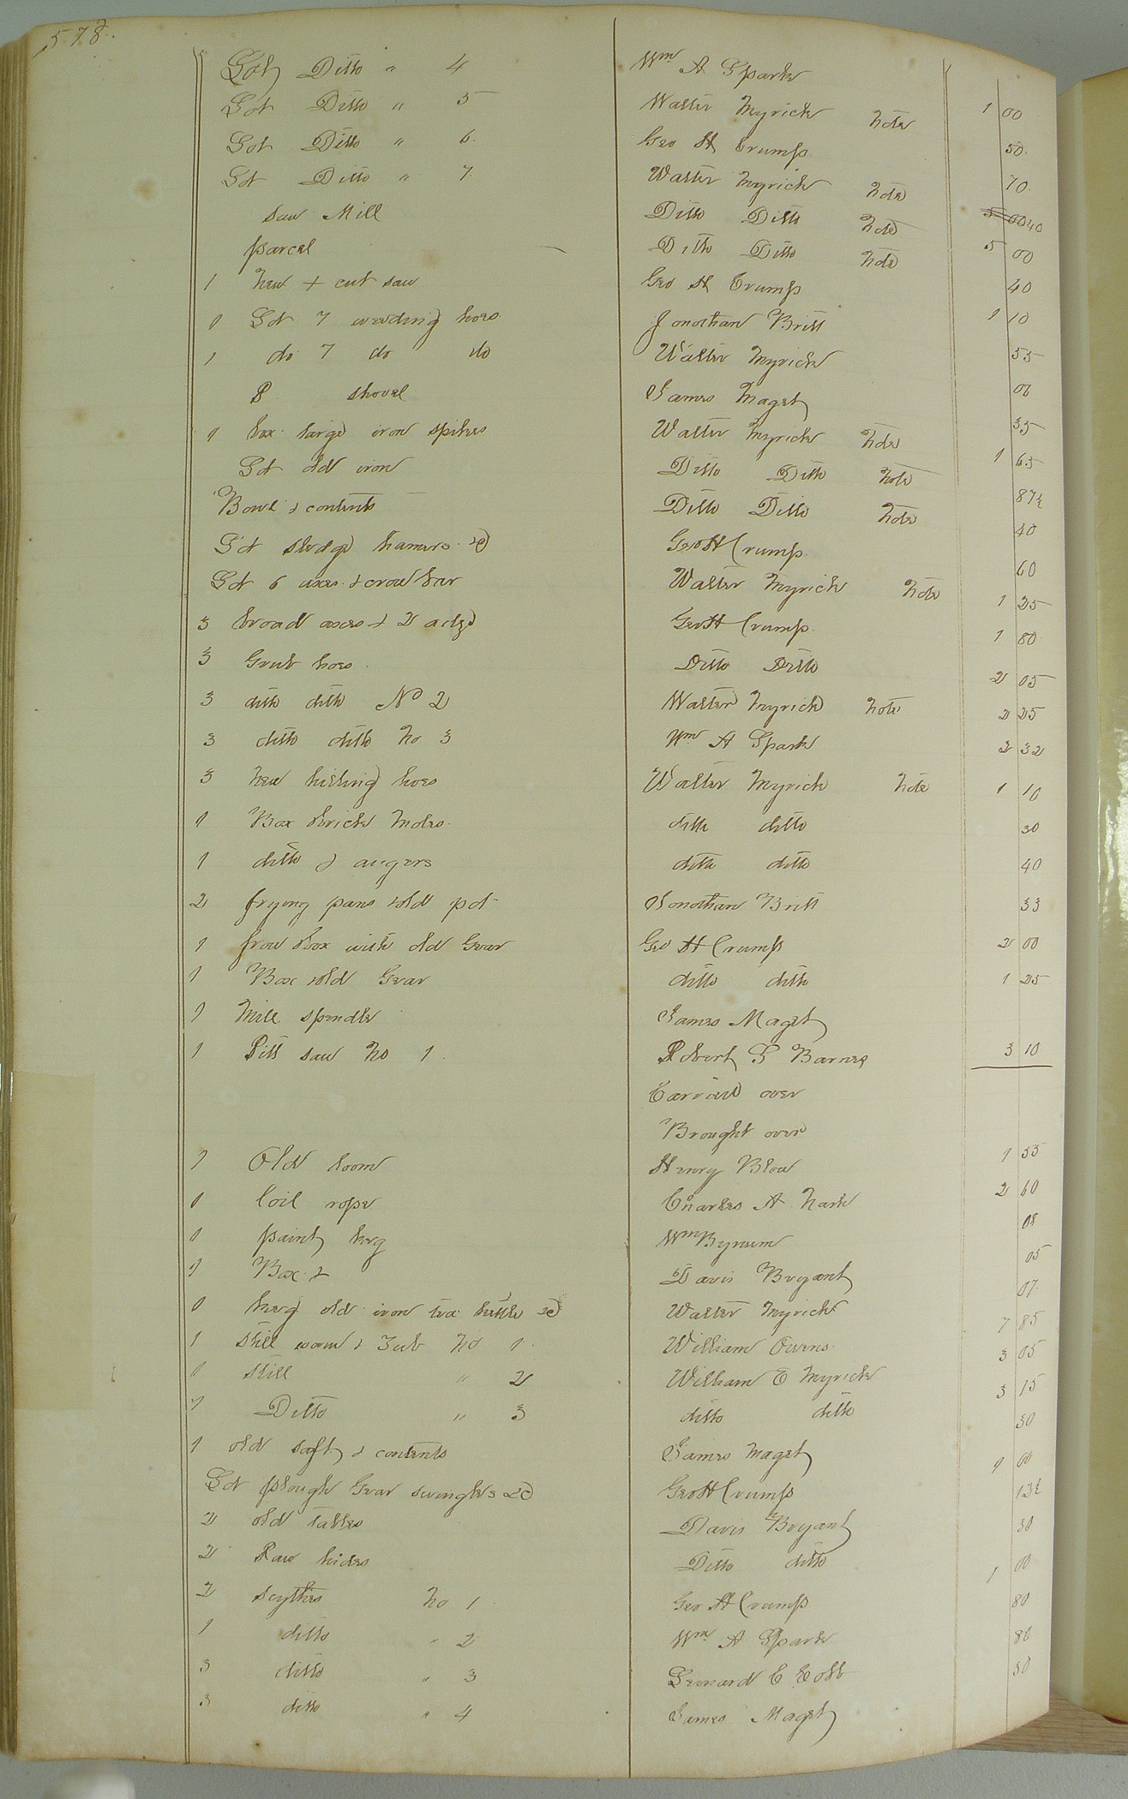 578.
Lot Ditto " 4 Wm A Spark
Lot Ditto " 5 Walter Myrick Note 1 00
Lot Ditto " 6 Geo H Crump 50
Lot Ditto " 7 Walter Myrick Note 70
Saw Mill Ditto Ditto Note 40
parcel Ditto Ditto Note 5 00
1 New + cut saw Geo H Crump 40
1 Lot 7 weeding hoes Jonathan Britt 1 10
1 do 7 do do Walter Myrick 55
shovel James Maget 06
1 box large iron spikes Walter Myrick Note 35
Lot old iron Ditto Ditto Note 1 65
Bowl & contents Ditto Ditto Note 87½
Lot sledge hamers &c Geo H Crump 40
Lot 6 axes & crow bar Walter Myrick Note 60
3 broad axes & 2 adze Geo H Crump 1 25
3 Grub hoes Ditto Ditto 1 80
3 ditto ditto No 2 Walter Myrick Note 2 05
3 ditto ditto No 3 Wm A Spark 2 25
3 New hilling hoes Walter Myrick Note 2 32
1 Box brick Moles ditto ditto 1 10
1 ditto & augers ditto ditto 30
2 frying pans & old pot Jonathan Britt 40
1 frow box with old Gear Geo H Crump 33
1 Box & old Gear ditto ditto 2 00
1 Mill spindle James Maget 1 25
1 Pitt saw No 1 Robert S Barnes 3 10
Carried over
Brought over
1 Old loom Henry Blow 1 55
1 Coil rope Charles A Nash 2 60
1 paint keg Wm Bynum 08
1 Box & Davis Bryant 05
1 keg old iron tea kittle &c Walter Myrick 07
1 still worm & Tub No 1 William Owens 7 85
1 still " 2 William E Myrick 3 05
1 Ditto " 3 ditto ditto 3 15
1 old saft & contents James Maget 50
Lot plough Gear swingles &c Geo H Crump 1 00
2 old tables Davis Bryant 12½
2 Raw hides Ditto ditto 50
2 scythes No 1 Geo H Crump 1 00
1 ditto " 2 Wm A Spark 80
3 ditto " 3 Leonard C Cobb 80
3 ditto " 4 James Maget 50